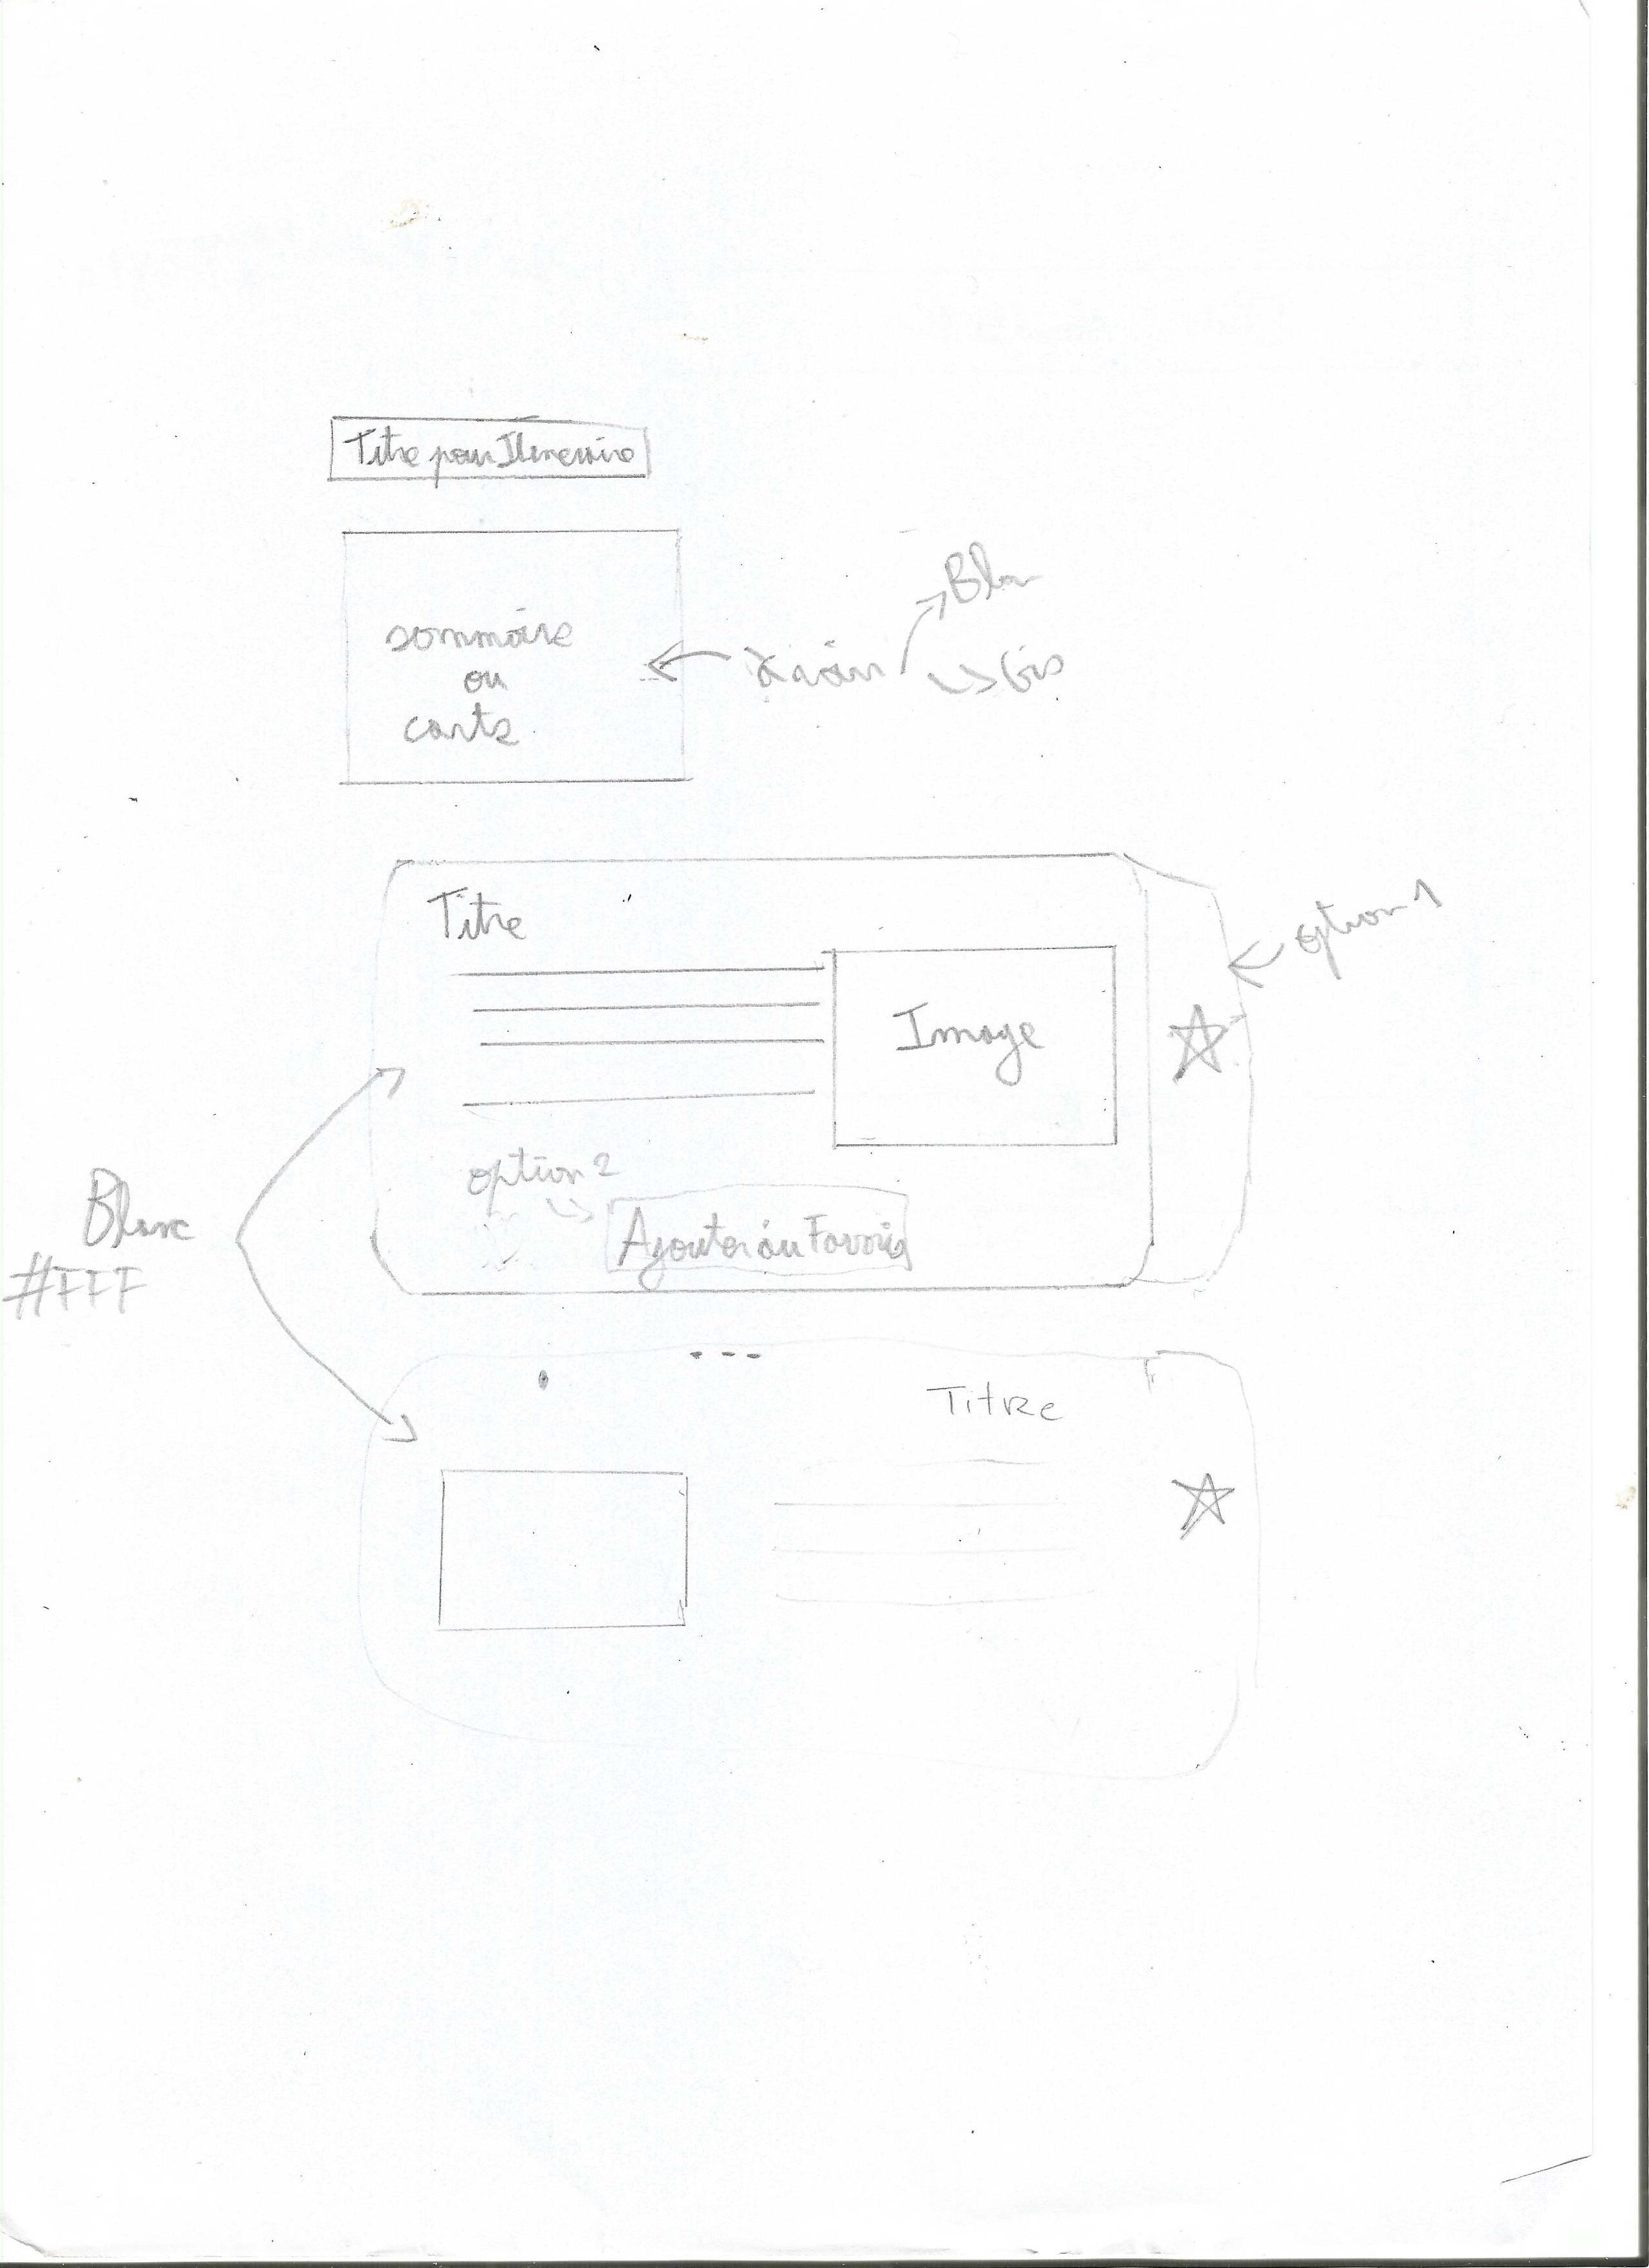 Titre pour Itineraire
sommaire
ou
carte
à voir
Titre
Image
option 1
option 2
Ajouter au Favoris
Blanc
#FFF
Titre